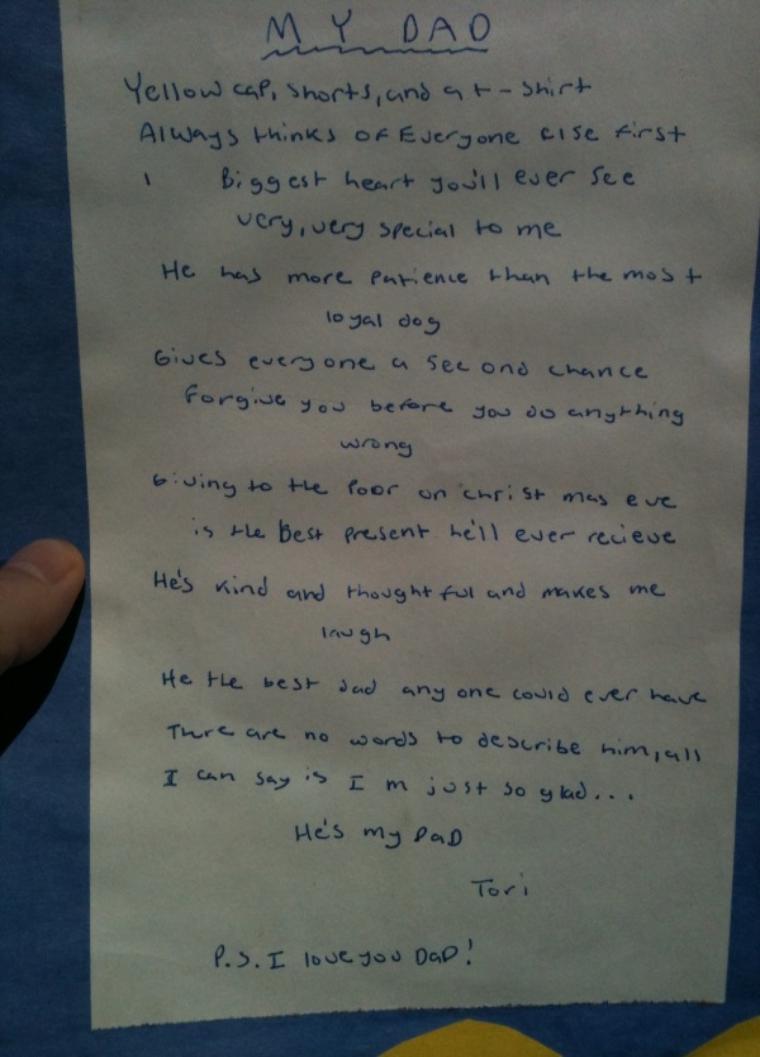 MY DAD
Yellow cap, shorts, and a t-shirt
Always thinks of Everyone else first
Biggest heart you'll ever see
very, very special to me
He has more patience than the most
loyal dog
Gives everyone a second chance
Forgive you before you do anything
wrong
Giving to the Poor on christmas eve
is the best present he'll ever recieve
He's kind and thoughtful and makes me
laugh
He the best dad any one could ever have
There are no words to describe him, all
I can say is I m just so glad...
He's my DaD
Tori
P.S. I love you DaD!